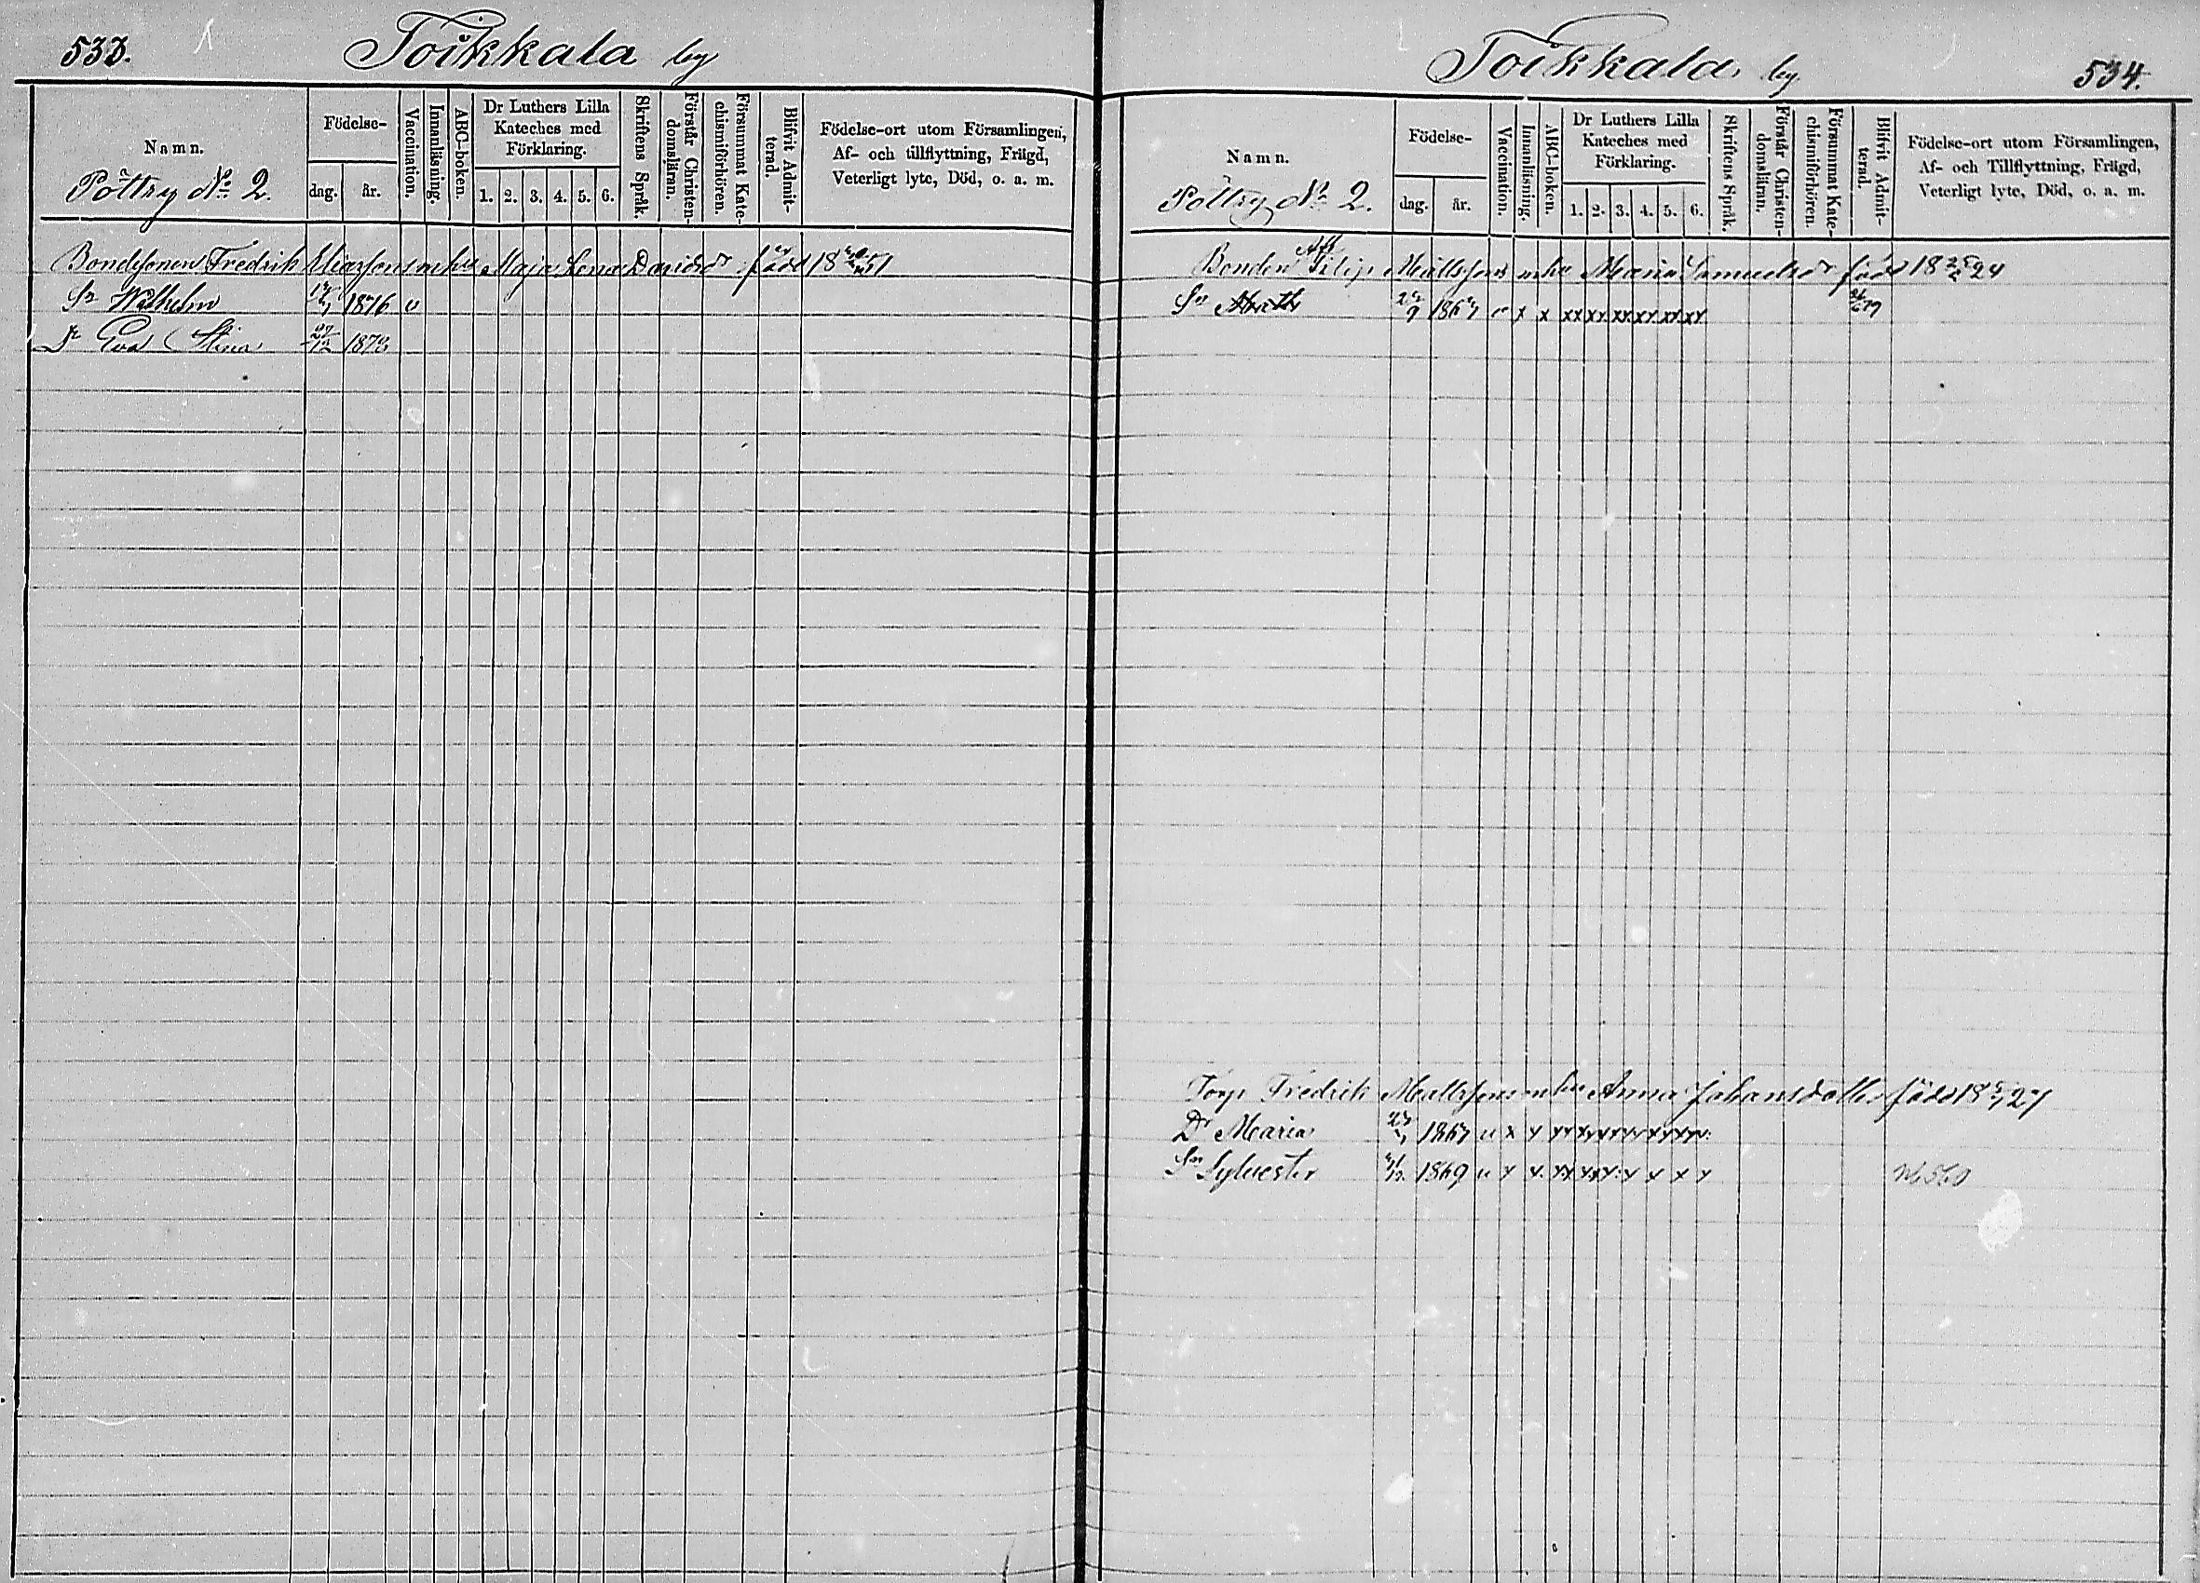 533. Toikkala by
Namn.
Pöttry No 2.
Födelse-
dag. år.
Vaccination.
Innanläsning.
ABC-boken.
Dr Luthers Lilla Kateches med Förklaring.
1. 2. 3. 4. 5. 6.
Skriftens Språk.
Förstår Christendomsläran.
Försummat Katechismiförhören.
Blifvit Admitterad.
Födelse-ort utom Församlingen, Af- och tillflyttning, Frägd, Veterligt lyte, Död, o. a. m.
Bondesonen Fredrik Eliazsons m hu Maja Lena Davidsdr född 18 51
Sn Wilhelm 1876 v
Dr Eva Stina 27/12 1878
Toikkala by 534.
Namn.
Pöttry No 2.
Födelse-
dag. år.
Vaccination.
Innanläsning.
ABC-boken.
Dr Luthers Lilla Kateches med Förklaring.
1. 2. 3. 4. 5. 6.
Skriftens Språk.
Förstår Christendomsläran.
Försummat Katechismiförhören.
Blifvit Admitterad.
Födelse-ort utom Församlingen, Af- och Tillflyttning, Frägd, Veterligt lyte, Död, o. a. m.
Bonden Filip Mattssons m hu Maria Samuelsdr född 18 24
Sn Math v x x xx xx xx xx xx xx
Torp Fredrik Mattssons m hu Anna Johansdotter född 18 27
Dr Maria 1867
Sn Sylvester 1869